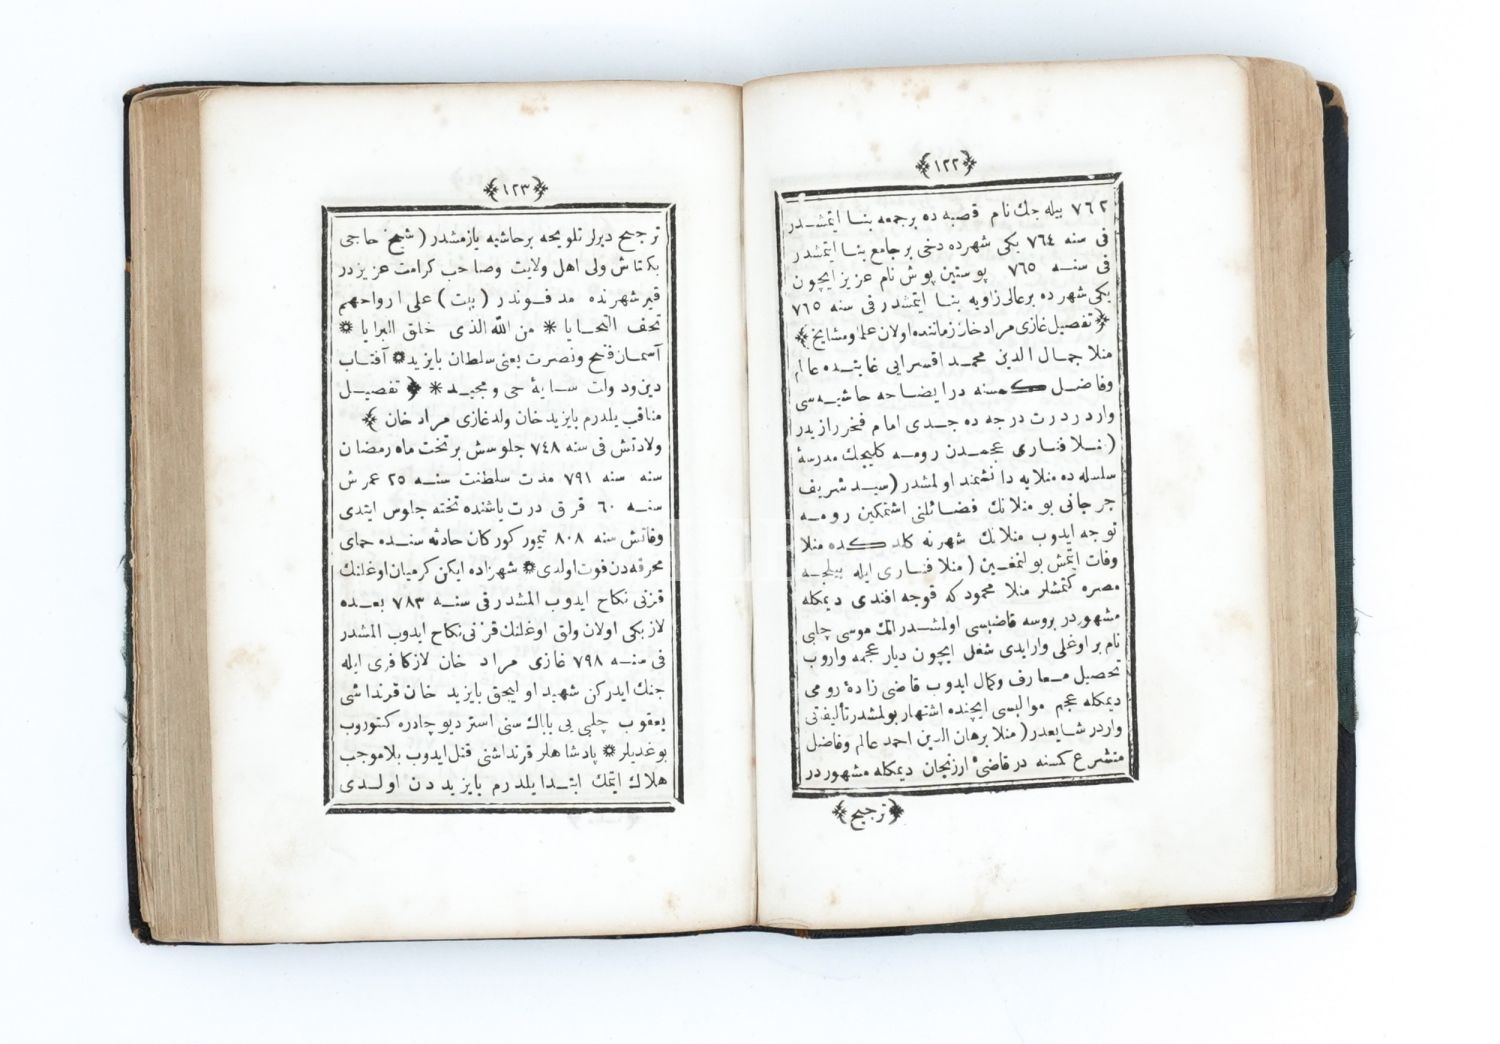 ﴿ ١٢٢ ﴾
٧٦٢ بيله جك نام قصبه ده برجمعه بنا ايتمشدر
فى سنه ٧٦٤ يكى شهرده دخى برجامع بنا ايتمشدر
فى سنه ٧٦٥ پوستين پوش نام عزيز ايچون
يكى شهرده برعالى زاويه بنا ايتمشدر فى سنه ٧٦٥
﴿ تفصيل غازى مراد خان زماننده اولان علما ومشايخ ﴾
منلا جمال الدين محمد اقسرايى غايتده عالم
وفاضل كمسنه در ايضاحه حاشيه سى
واردر درت درجه ده جدى امام فخر رازيدر
( منلا فنارى عجمدن رومه كليجك مدرسۀ
سلسله ده منلايه دانشمند اولمشدر ( سيد شريف
جرجانى بو منلانك فضائلنى اشتمكين رومه
توجه ايدوب منلانك شهرنه كلدكده منلا
وفات ايتمش بولنمغين ( منلا فنارى ايله بيلجه
مصره كتمشلر منلا محمود كه قوجه افندى ديمكله
مشهوردر بروسه قاضيسى اولمشدر انك موسى چلبى
نام بر اوغلى وارايدى شغل ايچون ديار عجمه واروب
تحصيل معارف وكمال ايدوب قاضى زادۀ رومى
ديمكله عجم موالىسى ايچنده اشتهار بولمشدر تأليفاتى
واردر شايعدر ( منلا برهان الدين احمد عالم وفاضل
متشرع كمسنه در قاضئ ارزنجان ديمكله مشهوردر
﴿ ترجيح ﴾
﴿ ١٢٣ ﴾
ترجيح ديرلر تلويحه برحاشيه يازمشدر ( شيخ حاجى
بكتاش ولى اهل ولايت وصاحب كرامت عزيزدر
قيرشهرنده مدفوندر ( بيت ) على ارواحهم
تحف التحايا * من الله الذى خلق البرايا *
آسمان فتح ونصرت يعنى سلطان بايزيد * آفتاب
دين ودولت سايۀ حى ومجيد * ﴿ تفصيل
مناقب يلدرم بايزيد خان ولد غازى مراد خان ﴾
ولادتش فى سنه ٧٤٨ جلوسش بر تخت ماه رمضان
سنه سنه ٧٩١ مدت سلطنت سنه ٢٥ عمرش
سنه ٦٠ قرق درت ياشنده تخته جلوس ايتدى
وفاتش سنه ٨٠٨ تيمور كوركان حادثه سنده حماى
محرقه دن فوت اولدى * شهزاده ايكن كرميان اوغلنك
قزنى نكاح ايدوب المشدر فى سنه ٧٨٣ بعده
لاز بكى اولان ولق اوغلنك قزنى نكاح ايدوب المشدر
فى سنه ٧٩٨ غازى مراد خان لاز كافرى ايله
جنك ايدركن شهيد اوليجق بايزيد خان قرنداشى
يعقوب چلبى يى باباك سنى استر ديو چادره كتوروب
بوغديلر * پادشاهلر قرنداشنى قتل ايدوب بلاموجب
هلاك ايتمك ابتدا يلدرم بايزيددن اولدى